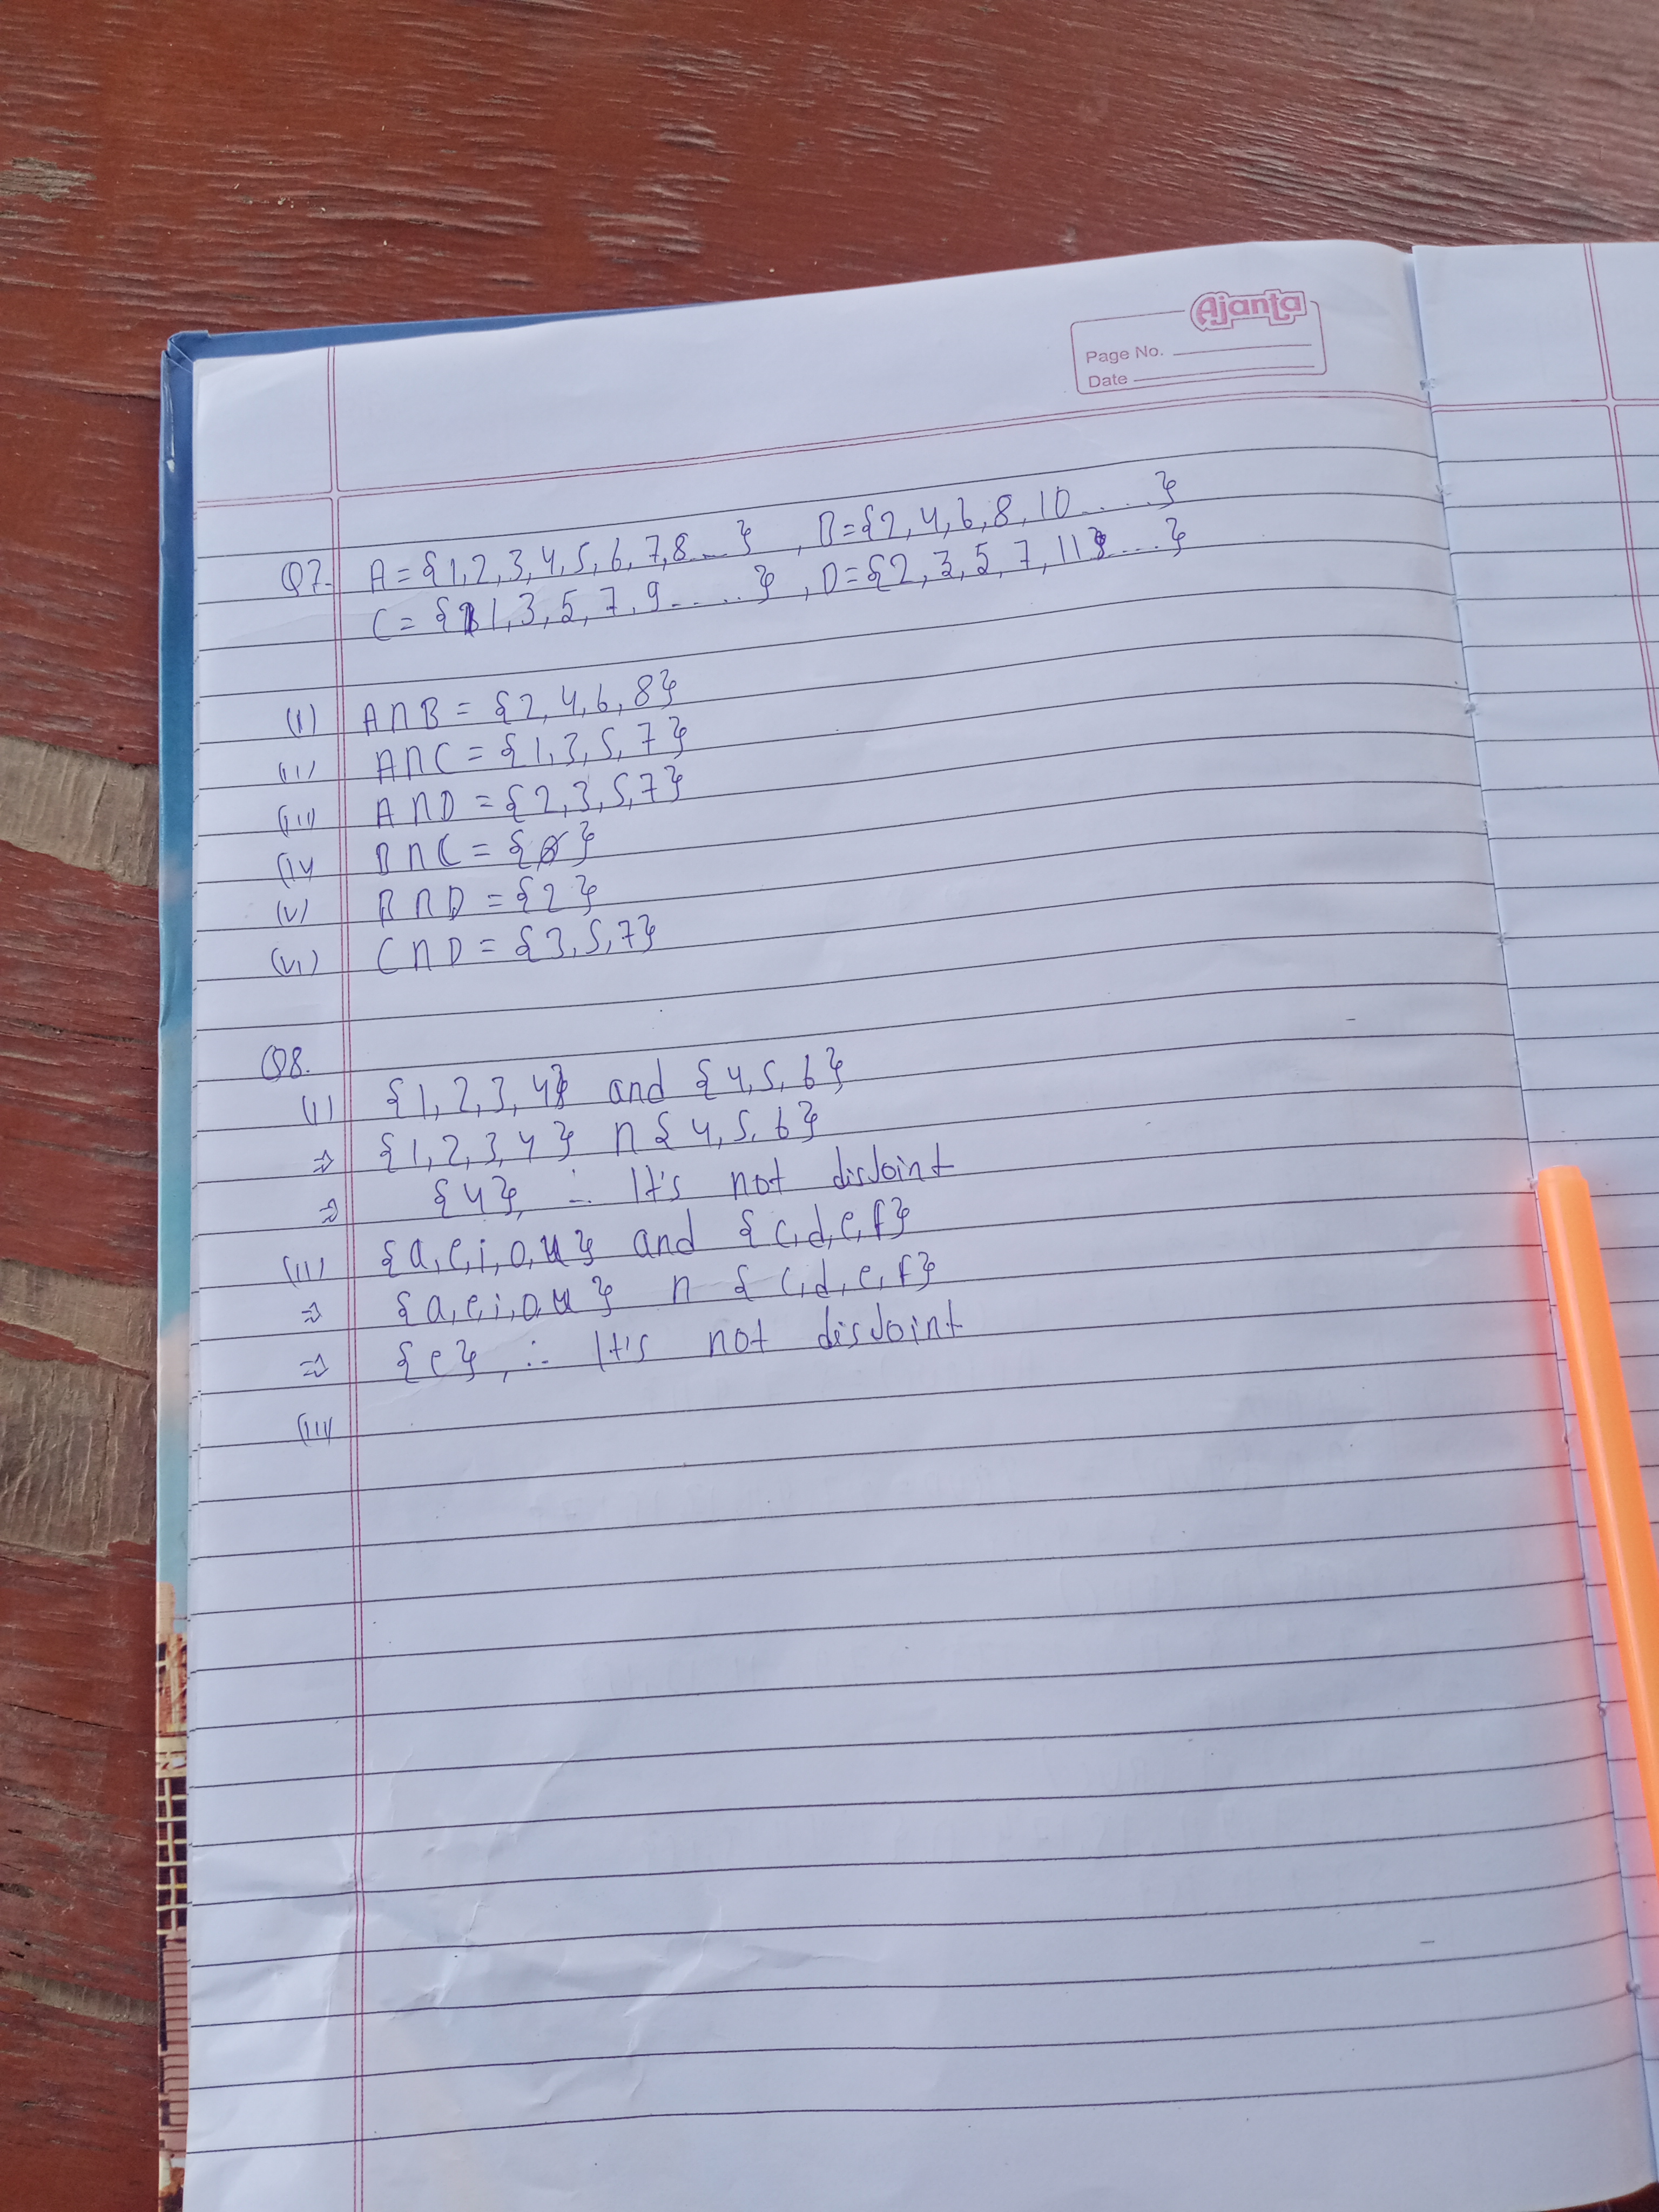 Ajanta
Page No.
Date
Q7. A = {1, 2, 3, 4, 5, 6, 7, 8 ... }, B = {2, 4, 6, 8, 10 ..... }
C = {1, 3, 5, 7, 9 ..... }, D = {2, 3, 5, 7, 11 .... }
(i) A∩B = {2, 4, 6, 8}
(ii) A∩C = {1, 3, 5, 7}
(iii) A∩D = {2, 3, 5, 7}
(iv B∩C = {ø}
(v) B∩D = {2}
(vi) C∩D = {3, 5, 7}
Q8.
(i) {1, 2, 3, 4} and {4, 5, 6}
⇒ {1, 2, 3, 4} ∩ {4, 5, 6}
⇒ {4}, ∴ It's not disjoint
(ii) {a, e, i, o, u} and {c, d, e, f}
⇒ {a, e, i, o, u} ∩ {c, d, e, f}
⇒ {e}, ∴ It's not disjoint
(iii)